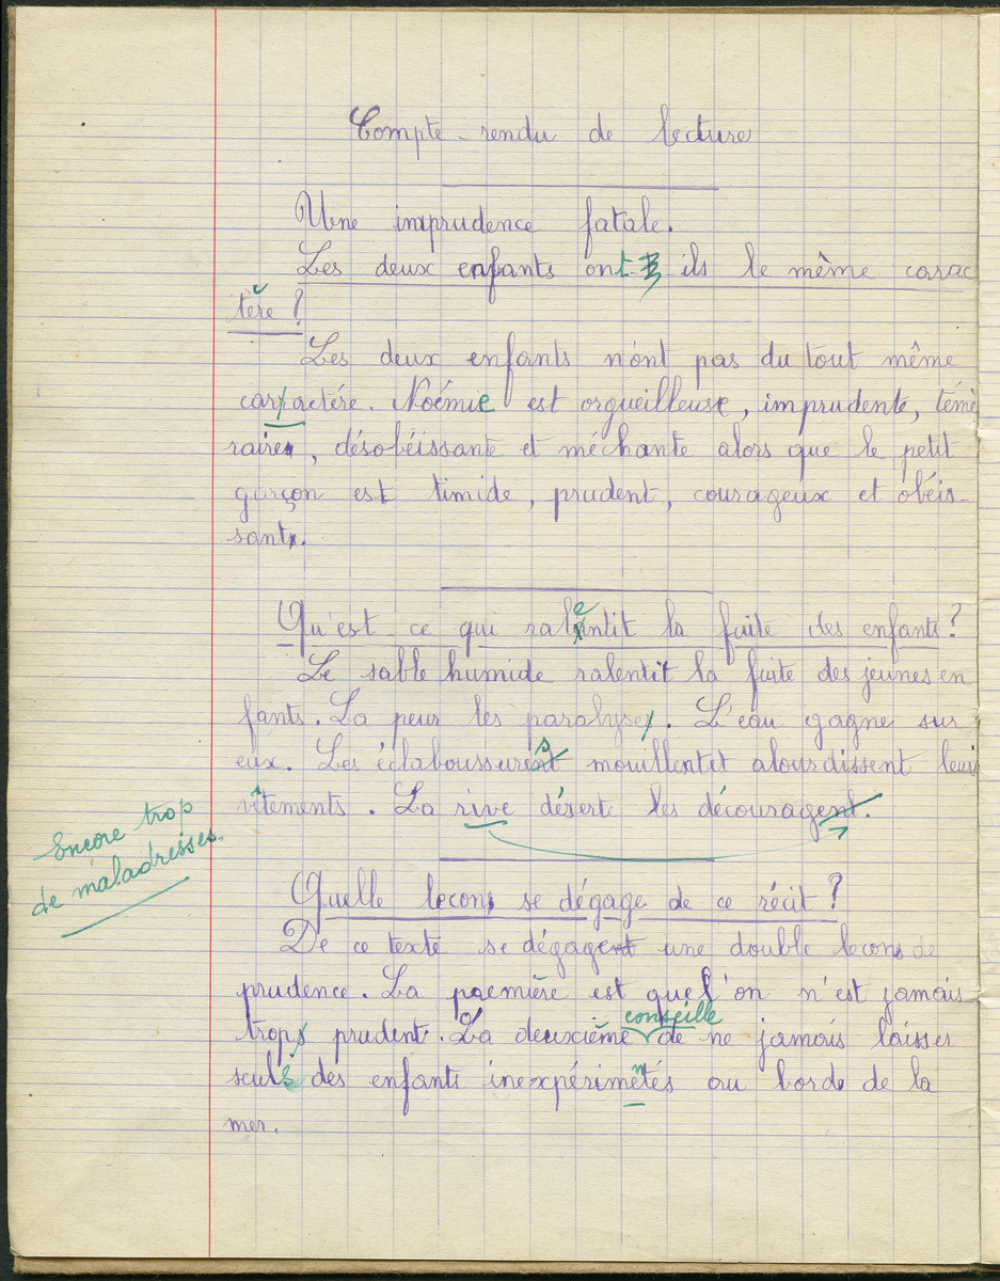 Compte-rendu de lecture
Une imprudence fatale.
Les deux enfants ont-ils le même carac
tère ?
Les deux enfants n'ont pas du tout même
caractére. Noémie est orgueilleuse, imprudente, témé
raire, désobéissante et méchante alors que le petit
garçon est timide, prudent, courageux et obéis-
sant.
Qu'est-ce qui ralentit la fuite des enfants ?
Le sable humide ralentit la fuite des jeunes en
fants. La peur les paralyse. L'eau gagne sur
eux. Les éclaboussures mouillent et alourdissent leurs
vêtements. La rive désert les découragent.
Encore trop
de maladresses.
Quelle leçons se dégage de ce récit ?
De ce texte se dégagent une double leçons de
prudence. La paemière est que l'on n'est jamais
conseille
trop prudent. La deuxième de ne jamais laisser
seuls des enfants inexpérimentés au bord de la
mer.